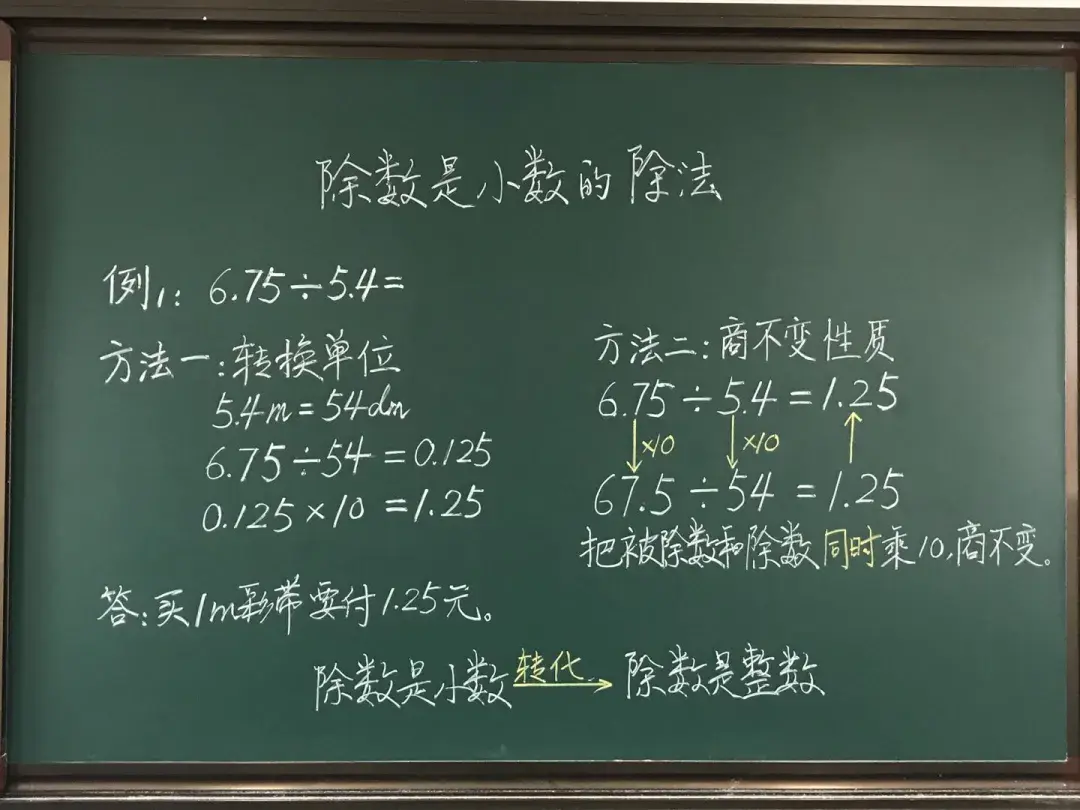 除数是小数的除法
例1: 6.75÷5.4=
方法一:转换单位
5.4m=54dm
6.75÷54=0.125
0.125×10=1.25
方法二:商不变性质
6.75÷5.4=1.25
×10 ×10
67.5÷54=1.25
把被除数和除数同时乘10,商不变。
答:买1m彩带要付1.25元。
除数是小数 转化 除数是整数